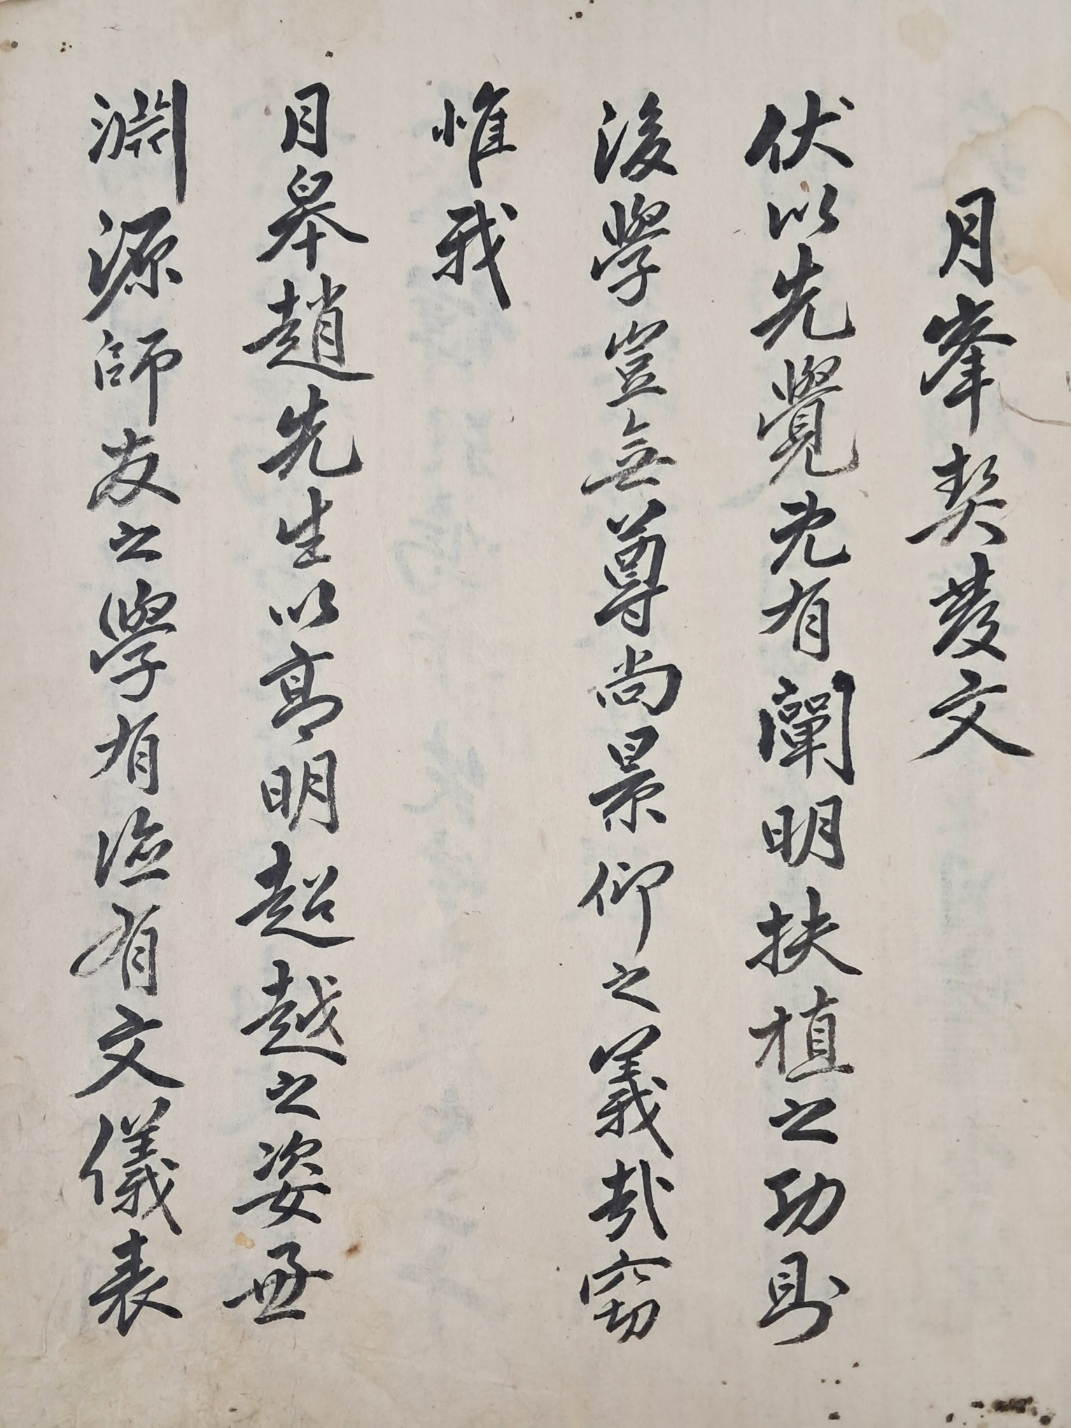 月峯契發文
伏以先覺旣有闡明扶植之功則
後學豈無尊尚景仰之義哉窃
惟我
月皐趙先生以高明超越之姿
淵源師友之學有德有文儀表